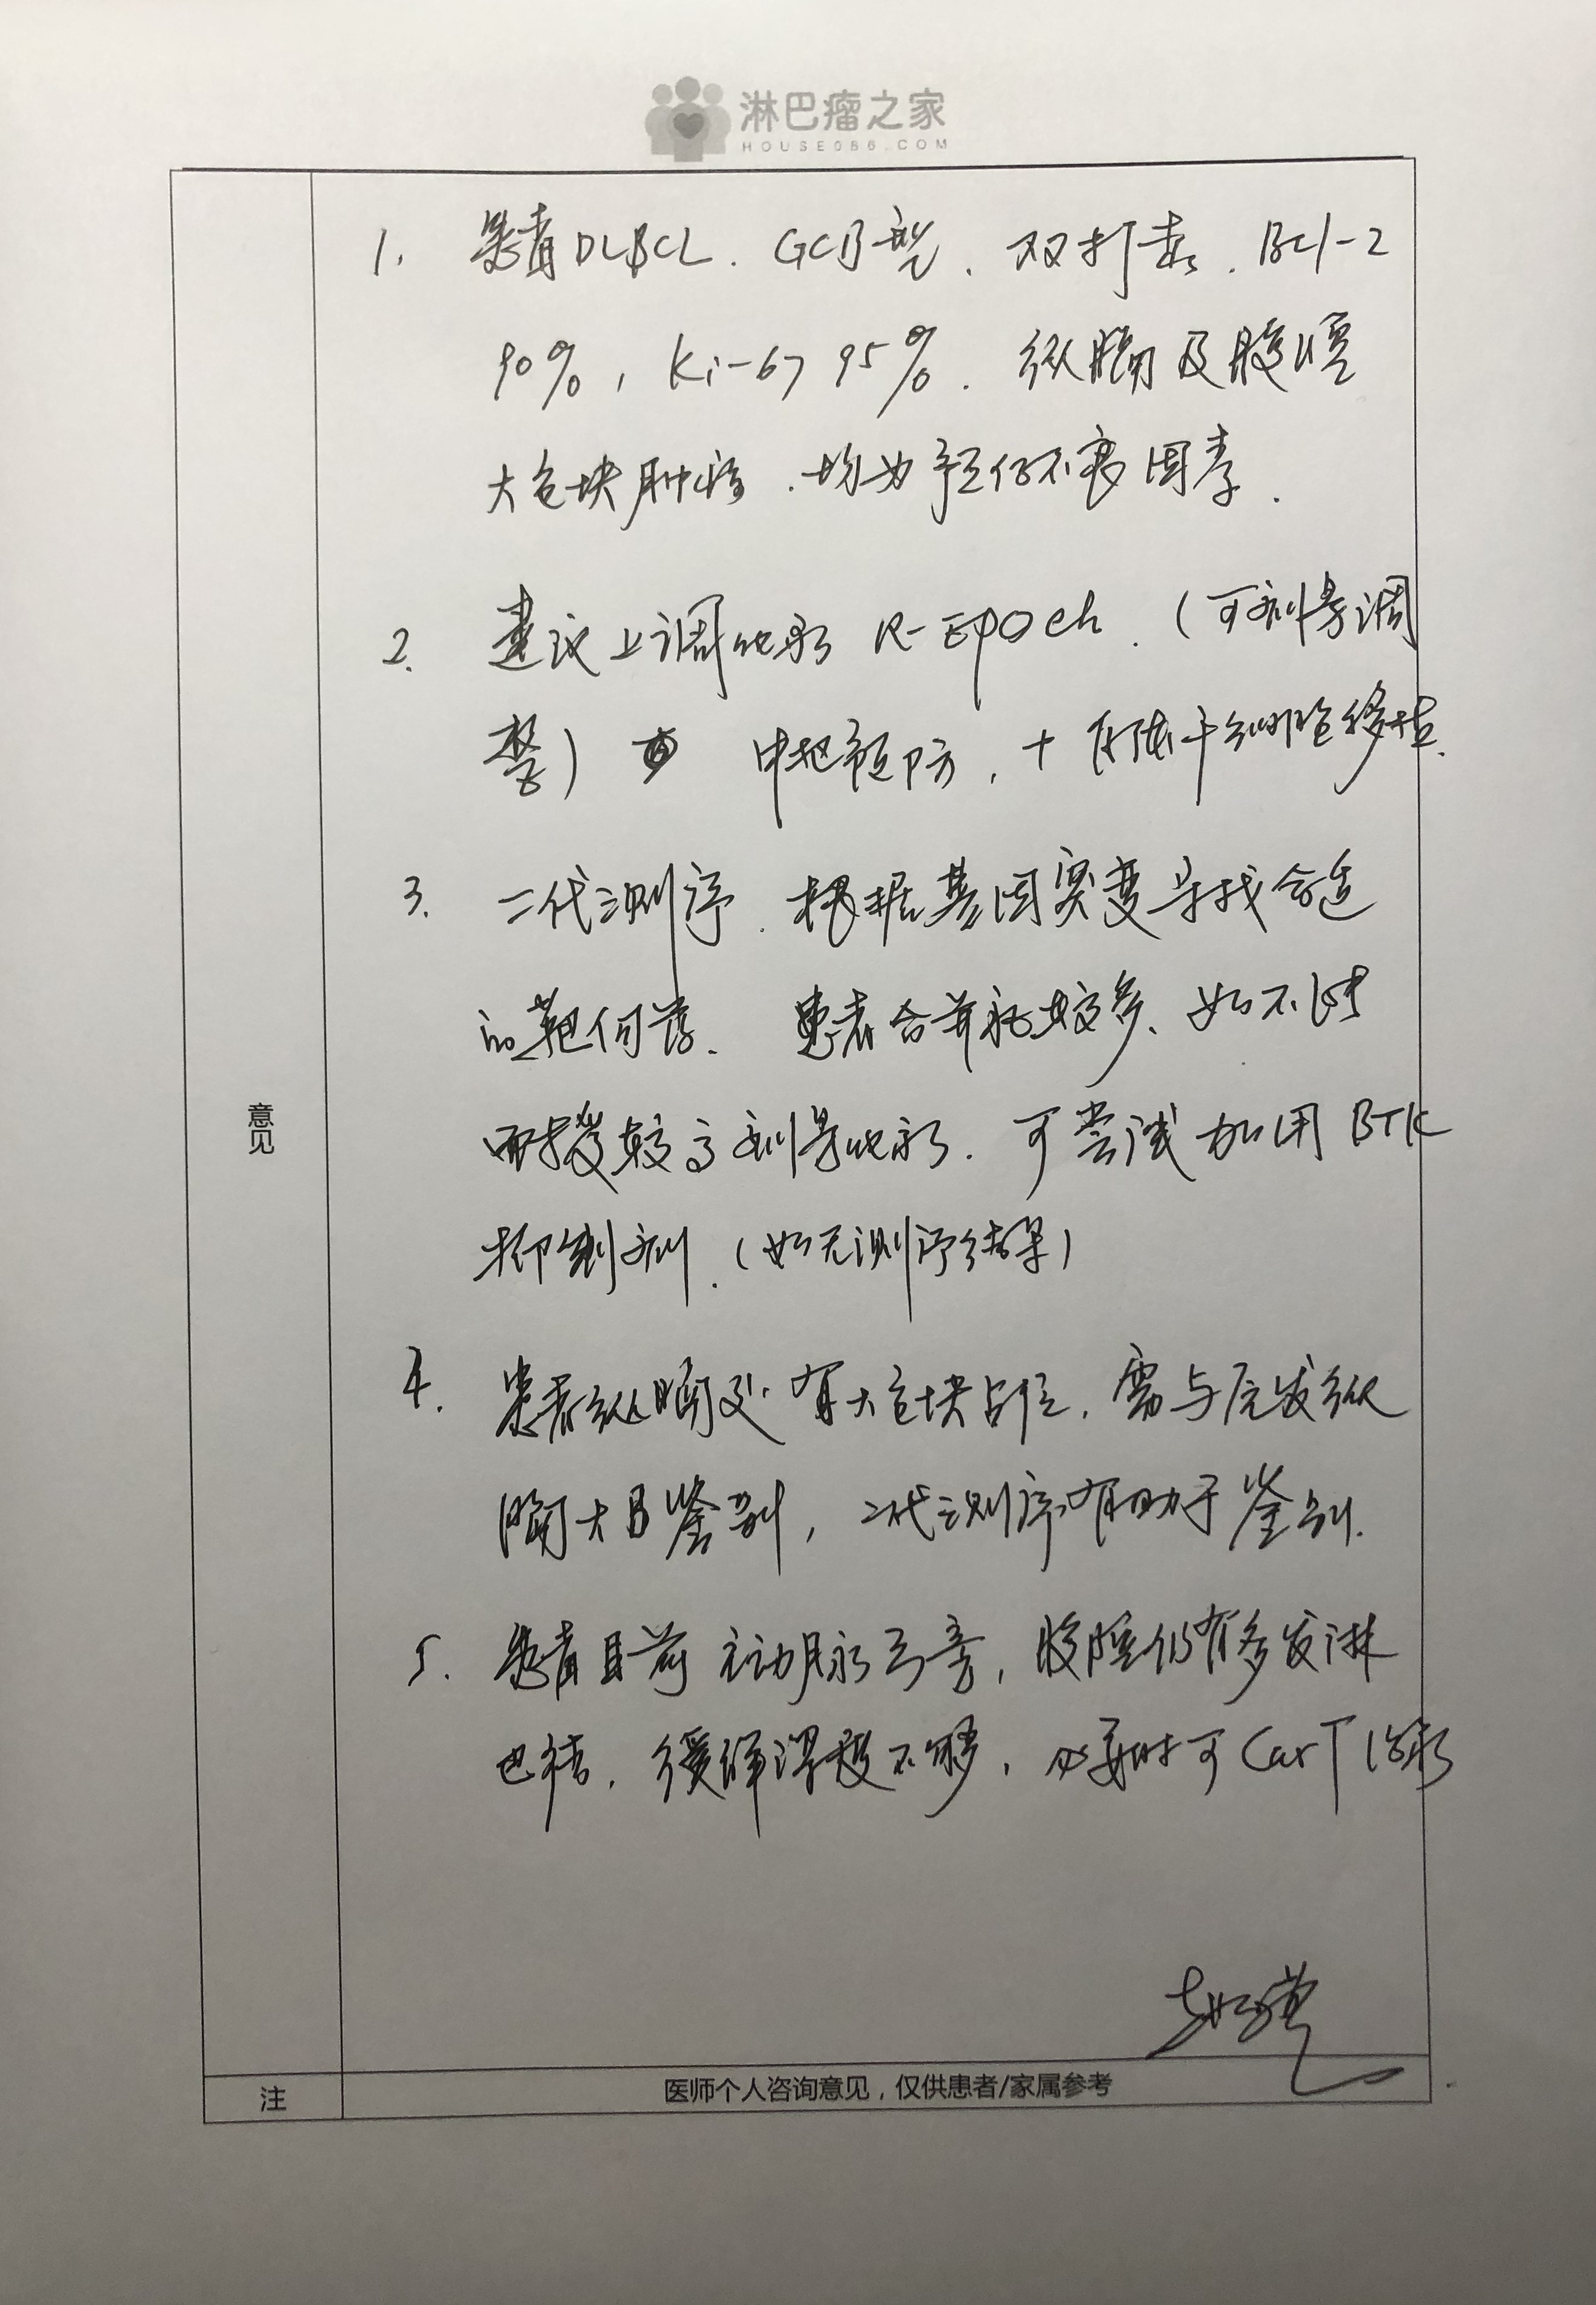 淋巴瘤之家
HOUSE086.COM
1. 患者DLBCL. GCB型. 双打击. Bcl-2
90%, Ki-67 95%. 纵膈及腹腔
大包块肿瘤. 均为预后不良因素.
2. 建议上调化疗 R-EPOCh. (可剂量调
整) 中枢预防, + 自体干细胞移植.
3. 二代测序. 根据基因突变寻找合适
的靶向药. 患者合并症较多、如不能
耐受较高剂量化疗. 可尝试加用BTK
抑制剂. (如无测序结果)
意见
4. 患者纵膈处有大包块占位, 需与原发纵
膈大B鉴别, 二代测序有助于鉴别.
5. 患者目前主动脉弓旁, 腹腔仍有多发淋
巴结. 缓解深度不够, 必要时可CarT治疗
注
医师个人咨询意见，仅供患者/家属参考